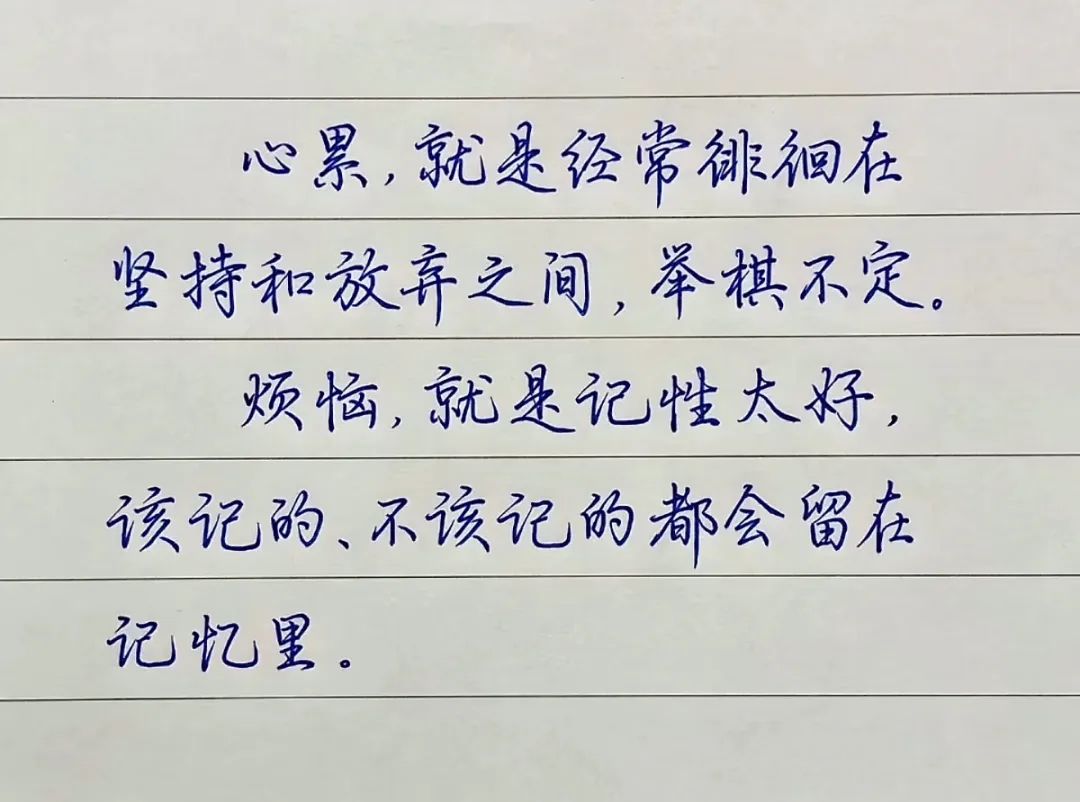 心累,就是经常徘徊在
坚持和放弃之间,举棋不定。
烦恼,就是记性太好,
该记的、不该记的都会留在
记忆里。